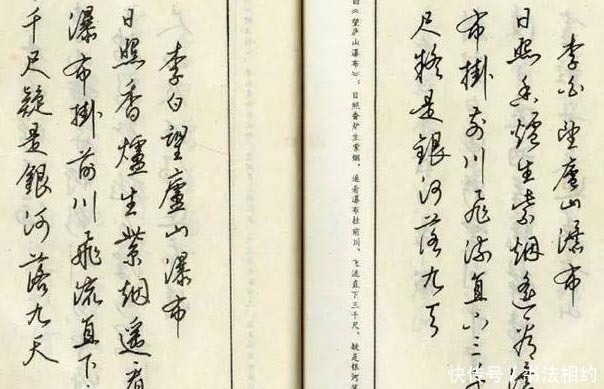 李白望廬山瀑布
日照香爐生紫烟遥看瀑
布掛前川飛流直下三千
尺疑是銀河落九天
白《望庐山瀑布》：日照香炉生紫烟，遥看瀑布挂前川。飞流直下三千尺，疑是银河
李白望廬山瀑布
日照香爐生紫烟遥看
瀑布掛前川飛流直下
千尺疑是銀河落九天
快传号/书法相约